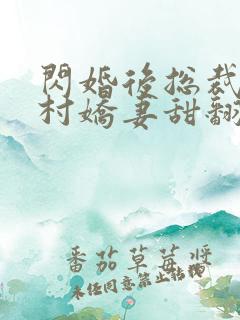 閃婚後總裁
村嬌妻甜翻
番茄草莓醬
未經同意禁止轉載